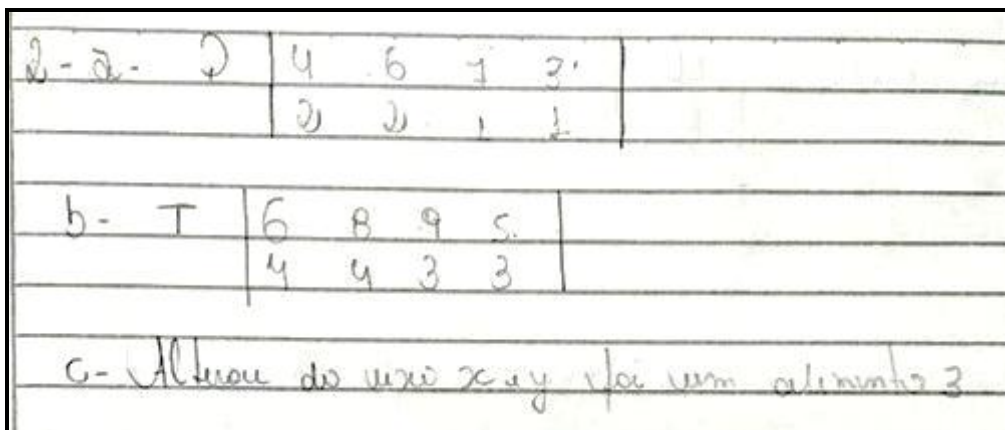 2 - a - D | 4 6 7 3 |
| 2 2 1 1 |
b - T | 6 8 9 5 |
| 4 4 3 3 |
c - Alterou do eixo x e y foi um 3